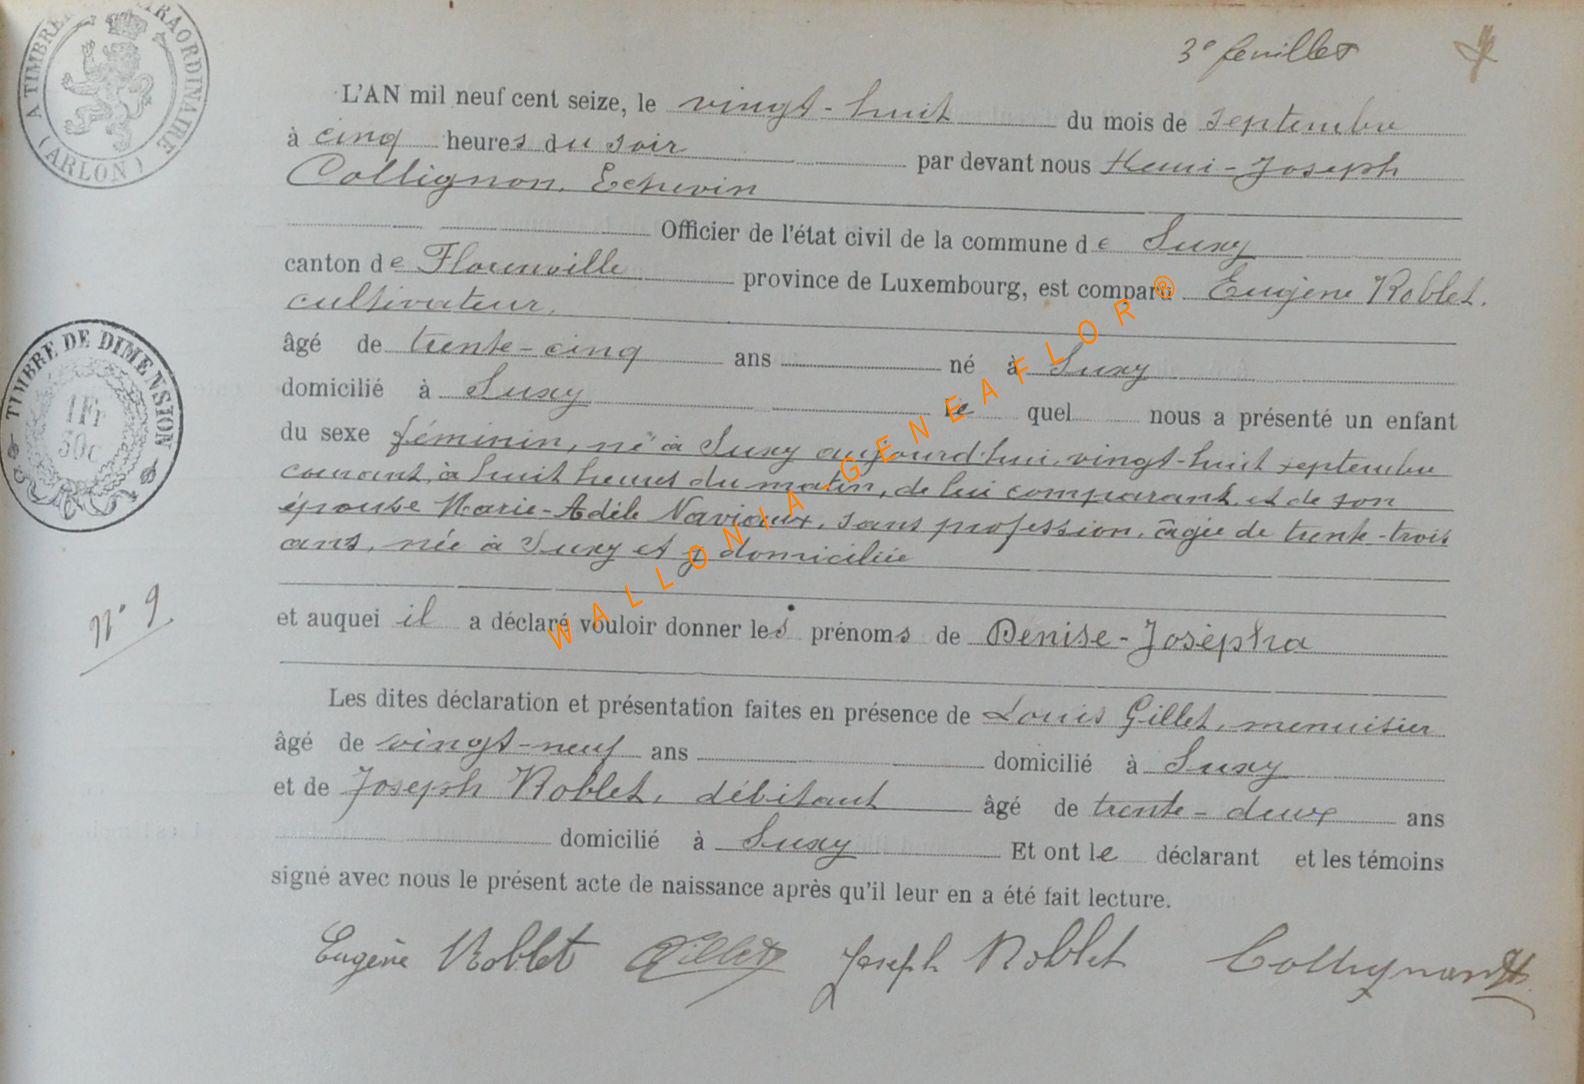 3e feuillet
A TIMBRE EXTRAORDINAIRE
(ARLON)
L'AN mil neuf cent seize, le vingt-huit du mois de septembre
à cinq heures du soir par devant nous Henri-Joseph
Collignon, Echevin
Officier de l'état civil de la commune de Suxy
canton de Florenville province de Luxembourg, est comparu Eugène Roblet,
cultivateur,
âgé de trente-cinq ans né à Suxy
domicilié à Suxy lequel nous a présenté un enfant
du sexe féminin, né à Suxy aujourd'hui, vingt-huit septembre
courant, à huit heures du matin, de lui comparant, et de son
épouse Marie-Adèle Navioux, sans profession, âgée de trente-trois
ans, née à Suxy et y domiciliée
TIMBRE DE DIMENSION
1Fr
50c
N° 9
et auquel il a déclaré vouloir donner les prénoms de Denise-Josèpha
Les dites déclaration et présentation faites en présence de Louis Gillet, menuisier
âgé de vingt-neuf ans domicilié à Suxy
et de Joseph Roblet, débitant âgé de trente-deux ans
domicilié à Suxy Et ont le déclarant et les témoins
signé avec nous le présent acte de naissance après qu'il leur en a été fait lecture.
Eugène Roblet Gillet Joseph Roblet Collignon
WALLONIA.GENEAFLOR®